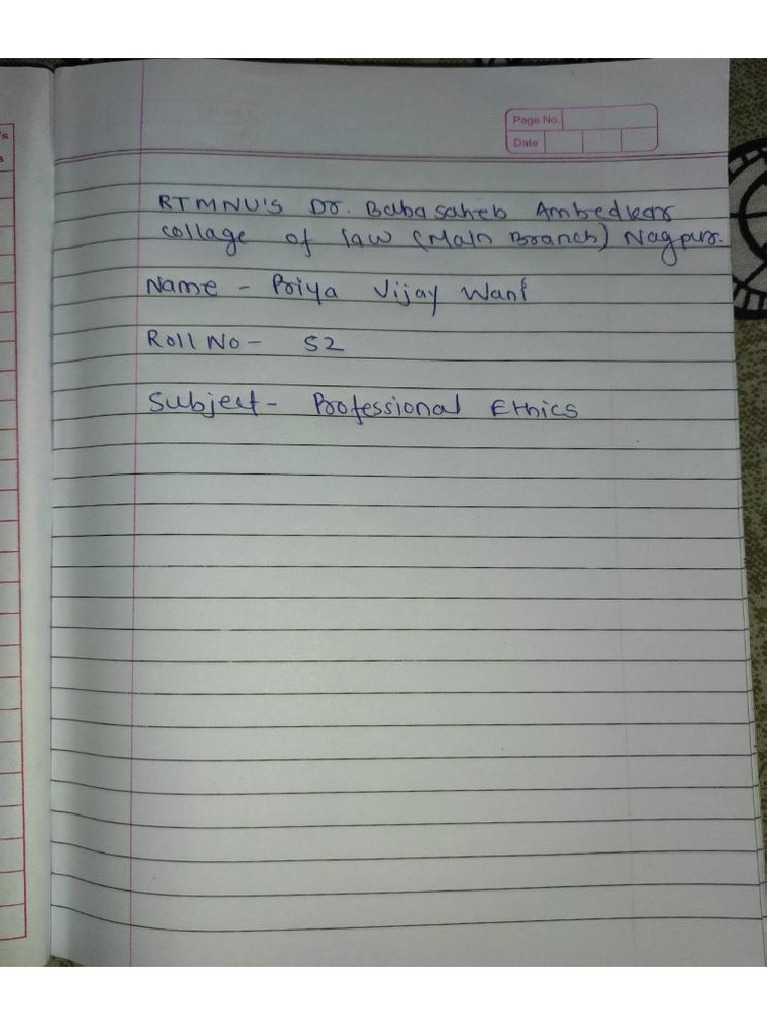 's
s
Page No.
Date
RTMNU'S Dr. Babasaheb Ambedkar
collage of law (Main Branch) Nagpur.
Name - Priya Vijay Wani
Roll No - 52
Subject - Professional Ethics